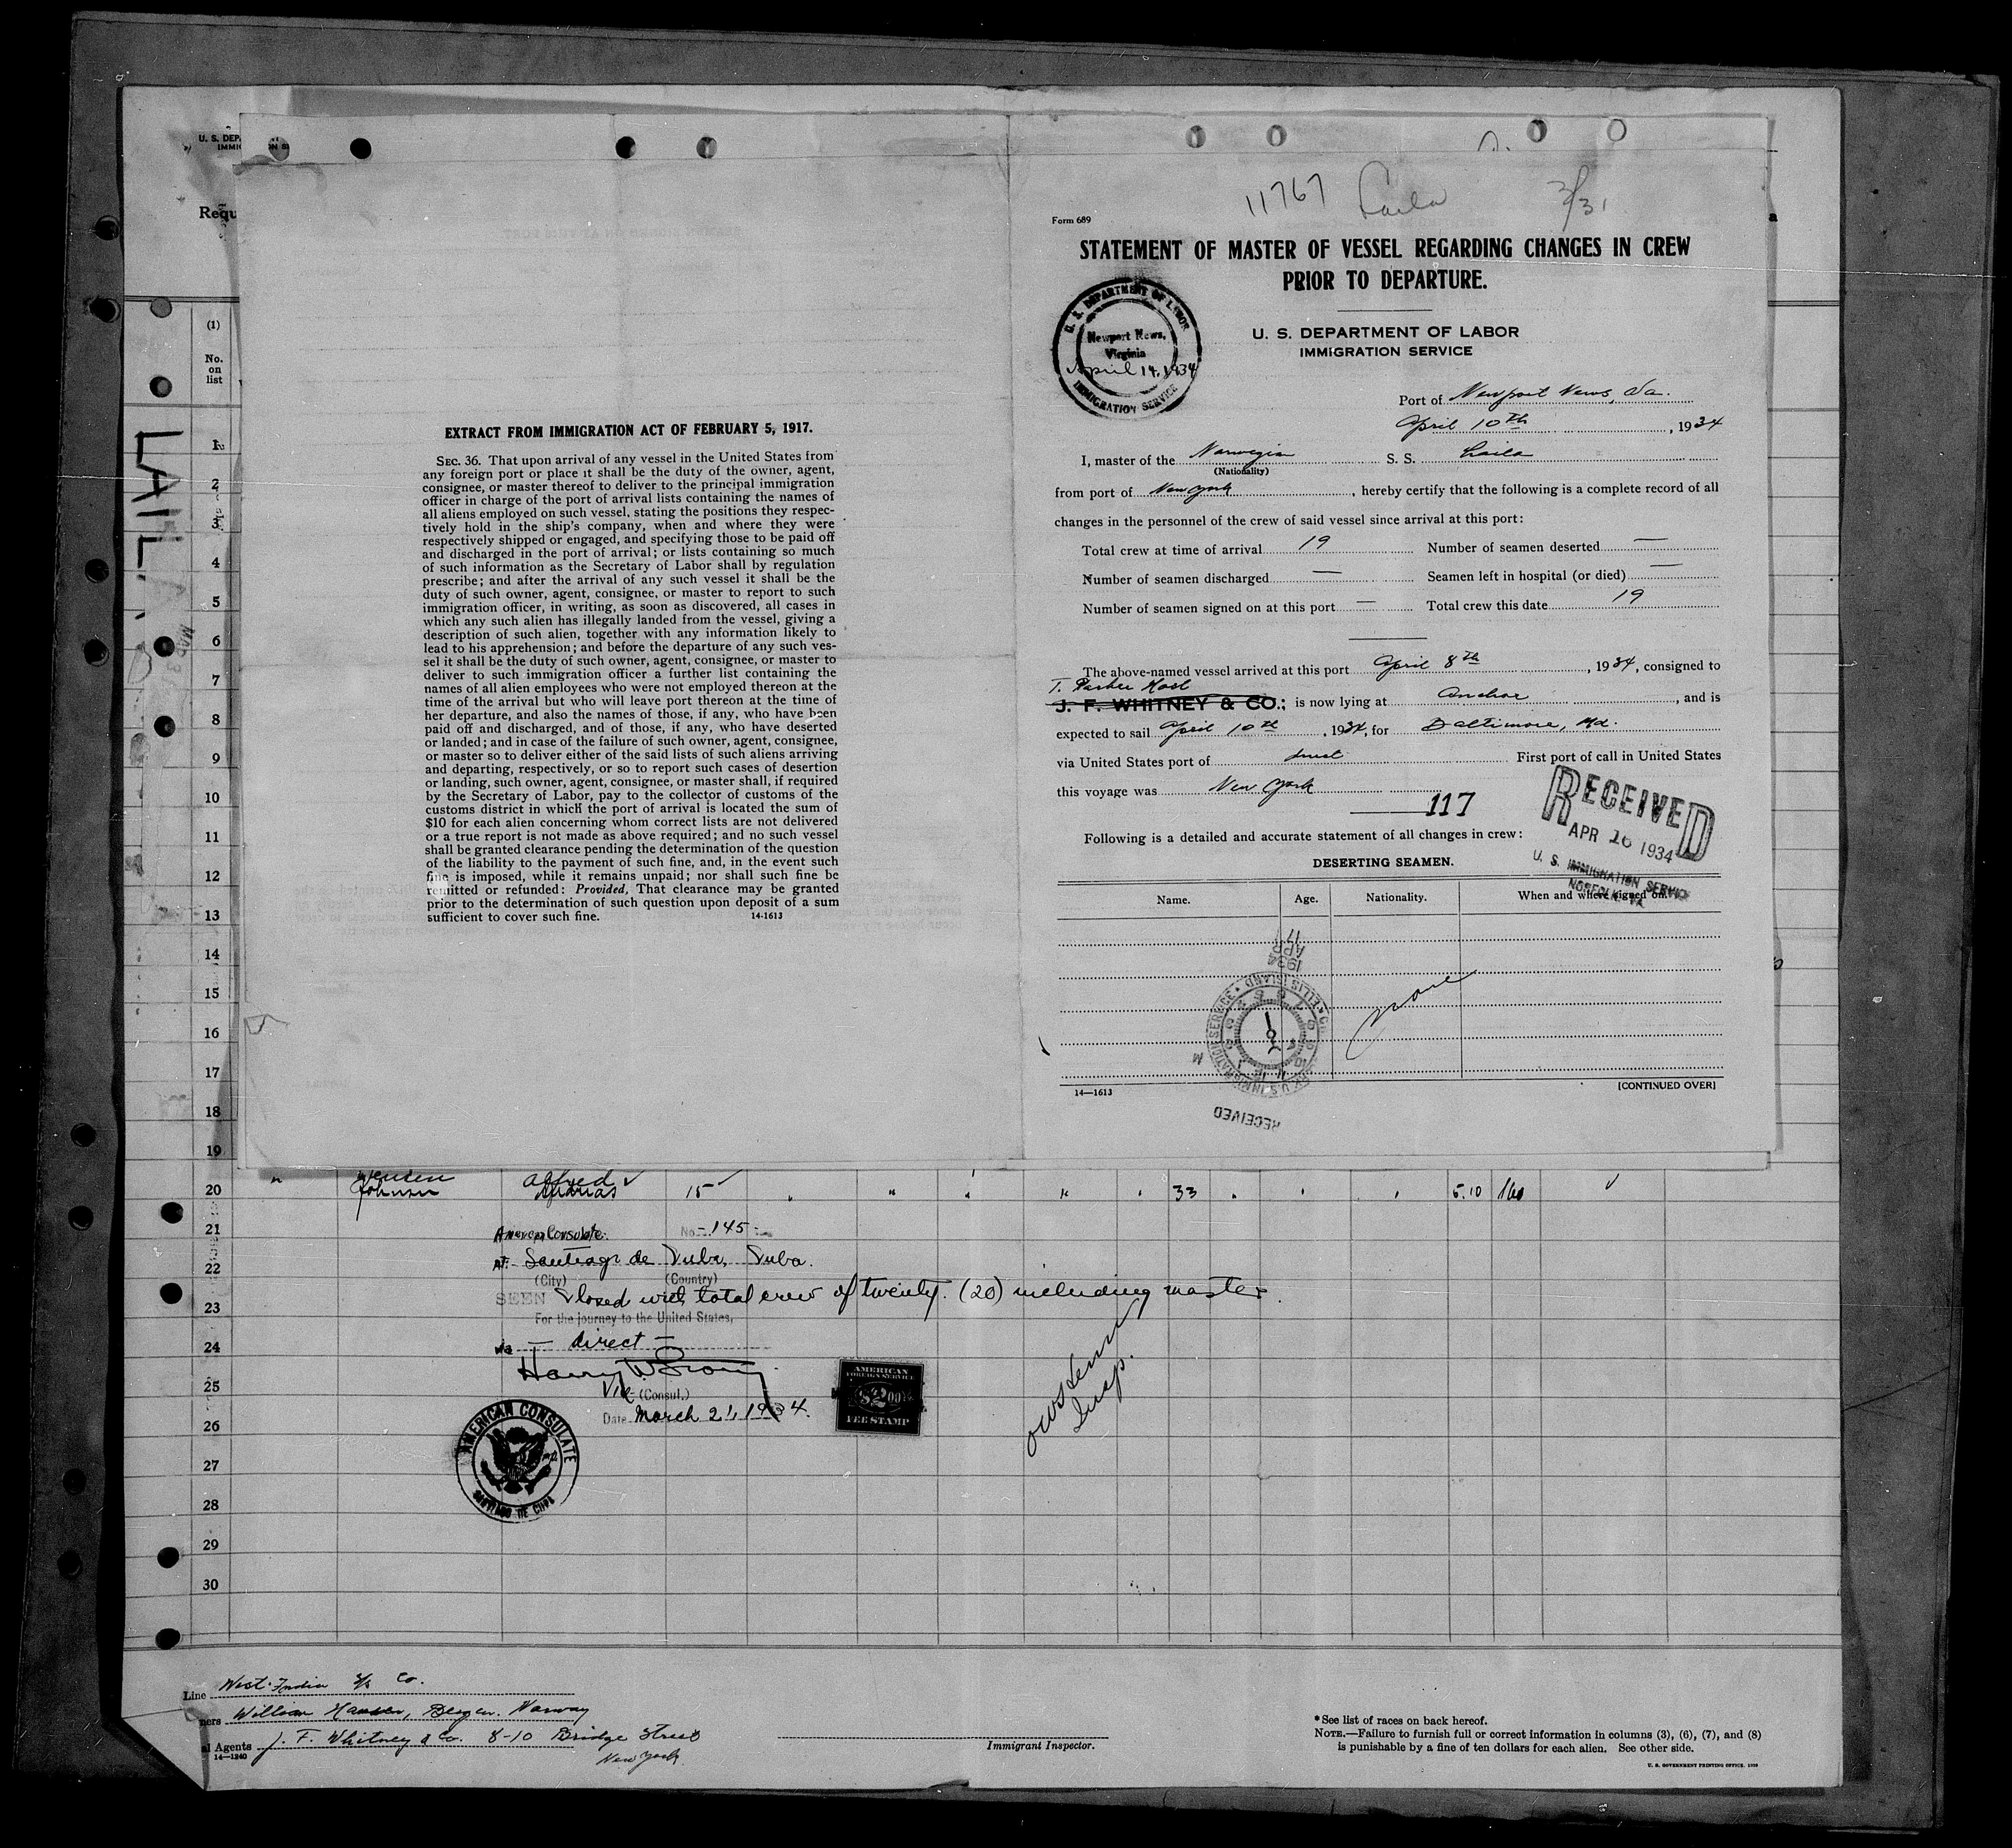 U. S. DEP
IMMI
Requ
(1)
No.
on
list
LAILA
1
2
3
4
5
6
7
8
9
10
11
12
13
14
15
16
17
18
19
EXTRACT FROM IMMIGRATION ACT OF FEBRUARY 5, 1917.
SEC. 36. That upon arrival of any vessel in the United States from
any foreign port or place it shall be the duty of the owner, agent,
consignee, or master thereof to deliver to the principal immigration
officer in charge of the port of arrival lists containing the names of
all aliens employed on such vessel, stating the positions they respec-
tively hold in the ship's company, when and where they were
respectively shipped or engaged, and specifying those to be paid off
and discharged in the port of arrival; or lists containing so much
of such information as the Secretary of Labor shall by regulation
prescribe; and after the arrival of any such vessel it shall be the
duty of such owner, agent, consignee, or master to report to such
immigration officer, in writing, as soon as discovered, all cases in
which any such alien has illegally landed from the vessel, giving a
description of such alien, together with any information likely to
lead to his apprehension; and before the departure of any such ves-
sel it shall be the duty of such owner, agent, consignee, or master to
deliver to such immigration officer a further list containing the
names of all alien employees who were not employed thereon at the
time of the arrival but who will leave port thereon at the time of
her departure, and also the names of those, if any, who have been
paid off and discharged, and of those, if any, who have deserted
or landed; and in case of the failure of such owner, agent, consignee,
or master so to deliver either of the said lists of such aliens arriving
and departing, respectively, or so to report such cases of desertion
or landing, such owner, agent, consignee, or master shall, if required
by the Secretary of Labor, pay to the collector of customs of the
customs district in which the port of arrival is located the sum of
$10 for each alien concerning whom correct lists are not delivered
or a true report is not made as above required; and no such vessel
shall be granted clearance pending the determination of the question
of the liability to the payment of such fine, and, in the event such
fine is imposed, while it remains unpaid; nor shall such fine be
remitted or refunded: Provided, That clearance may be granted
prior to the determination of such question upon deposit of a sum
sufficient to cover such fine. 14-1613
11767 Laila 3/31
Form 689
STATEMENT OF MASTER OF VESSEL REGARDING CHANGES IN CREW
PRIOR TO DEPARTURE.
U. S. DEPARTMENT OF LABOR
IMMIGRATION SERVICE
U. S. DEPARTMENT OF LABOR
Newport News,
Virginia
April 14, 1934
IMMIGRATION SERVICE
Port of Newport News, Va.
April 10th, 1934
I, master of the Norwegian S. S. Laila
(Nationality)
from port of New York, hereby certify that the following is a complete record of all
changes in the personnel of the crew of said vessel since arrival at this port:
Total crew at time of arrival 19 Number of seamen deserted —
Number of seamen discharged — Seamen left in hospital (or died) —
Number of seamen signed on at this port — Total crew this date 19
The above-named vessel arrived at this port April 8th, 1934, consigned to
T. Parker Host
J. F. WHITNEY & CO.; is now lying at Anchor, and is
expected to sail April 10th, 1934, for Baltimore, Md.
via United States port of direct First port of call in United States
this voyage was New York
117
Following is a detailed and accurate statement of all changes in crew:
RECEIVED
APR 16 1934
U. S. IMMIGRATION SERVICE
NORFOLK, VA.
DESERTING SEAMEN.
Name. Age. Nationality. When and where signed on.
none
1934
APR
17
U.S. IMMIGRATION SERVICE ELLIS ISLAND
RECEIVED
14—1613 [CONTINUED OVER]
20 Johnson Alfred 15 33 5.10 160
21
22
23
24
25
26
27
28
29
30
American Consulate No. 145
At Santiago de Cuba, Cuba.
(City) (Country)
SEEN Closed with total crew of twenty. (20) including master.
For the journey to the United States,
via — direct —
Vice (Consul.)
Date March 21, 1934.
AMERICAN
FOREIGN SERVICE
$2.00
FEE STAMP
AMERICAN CONSULATE
SANTIAGO DE CUBA
Insp.
Line West India S/S Co.
ners William Hansen, Bergen. Norway
al Agents J. F. Whitney & Co. 8-10 Bridge Street
New York.
14—1240
Immigrant Inspector.
* See list of races on back hereof.
NOTE.—Failure to furnish full or correct information in columns (3), (6), (7), and (8)
is punishable by a fine of ten dollars for each alien. See other side.
U. S. GOVERNMENT PRINTING OFFICE